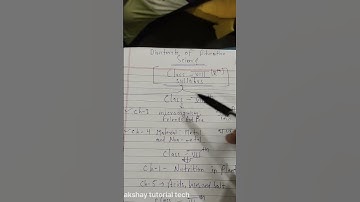 Directorate of Education
Science
Class - VIII (8th)
syllabus
Class - VIII
Ch-2 microorganisms
Friend and Foe
Ch-4 Material Metal
and Non-metal
Class - VII
Ch-1 - Nutrition in Plant
Ch-5 → Acids, bases and Salts
akshay tutorial tech